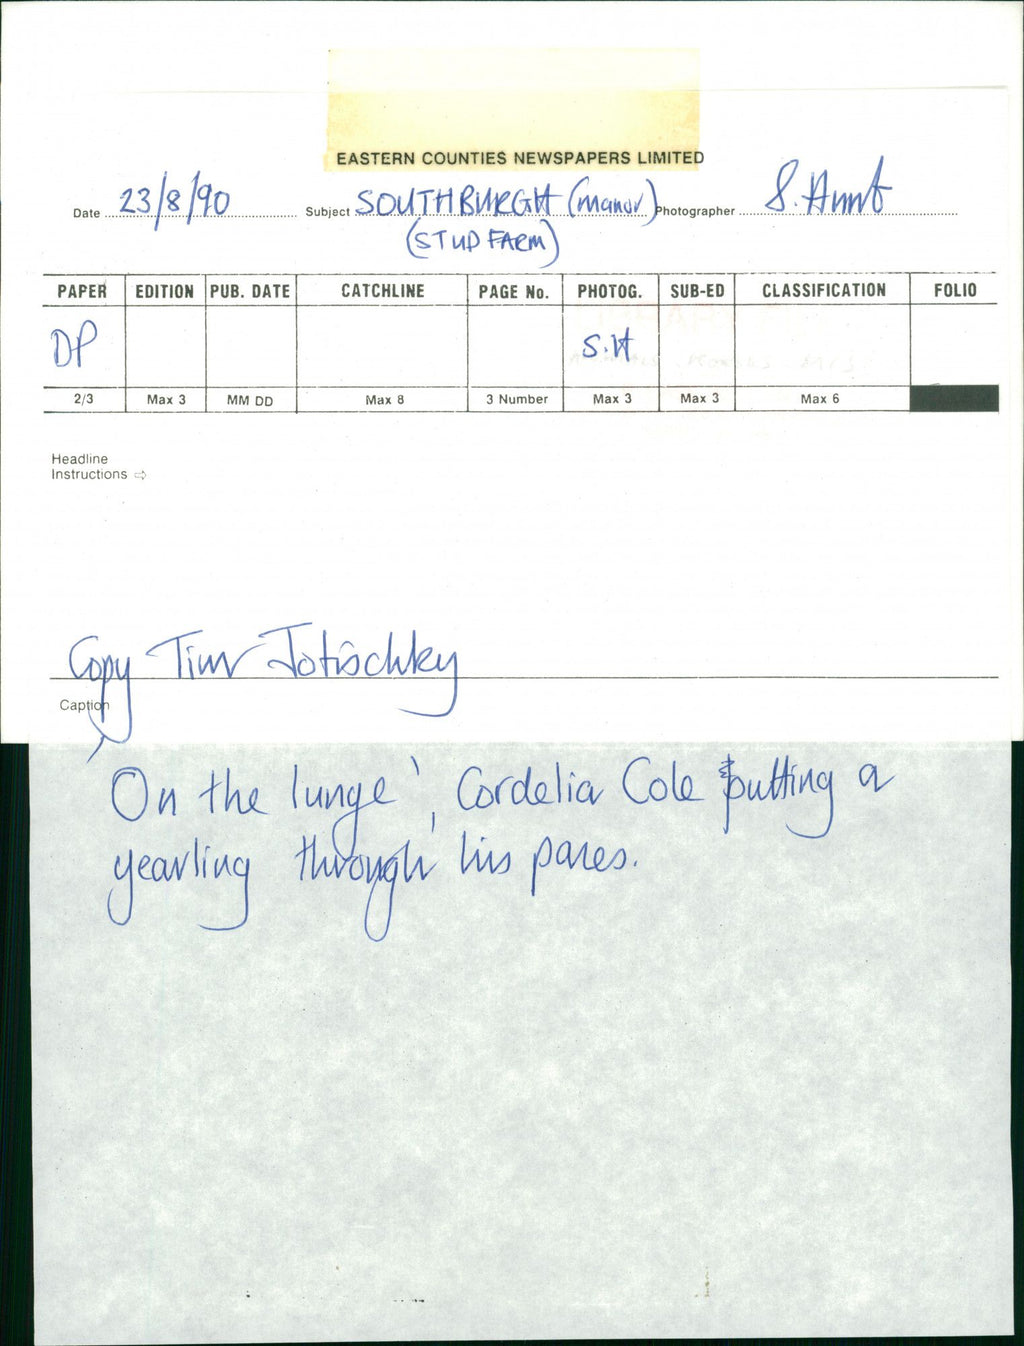 EASTERN COUNTIES NEWSPAPERS LIMITED
Date 23/8/90 Subject SOUTHBURGH (Manor) Photographer S. Hunt
(STUD FARM)
PAPER EDITION PUB. DATE CATCHLINE PAGE No. PHOTOG. SUB-ED CLASSIFICATION FOLIO
DP S.H
2/3 Max 3 MM DD Max 8 3 Number Max 3 Max 3 Max 6
Headline
Instructions ⇨
Copy Tim Jotischky
Caption
'On the lunge', Cordelia Cole putting a
yearling through his paces.